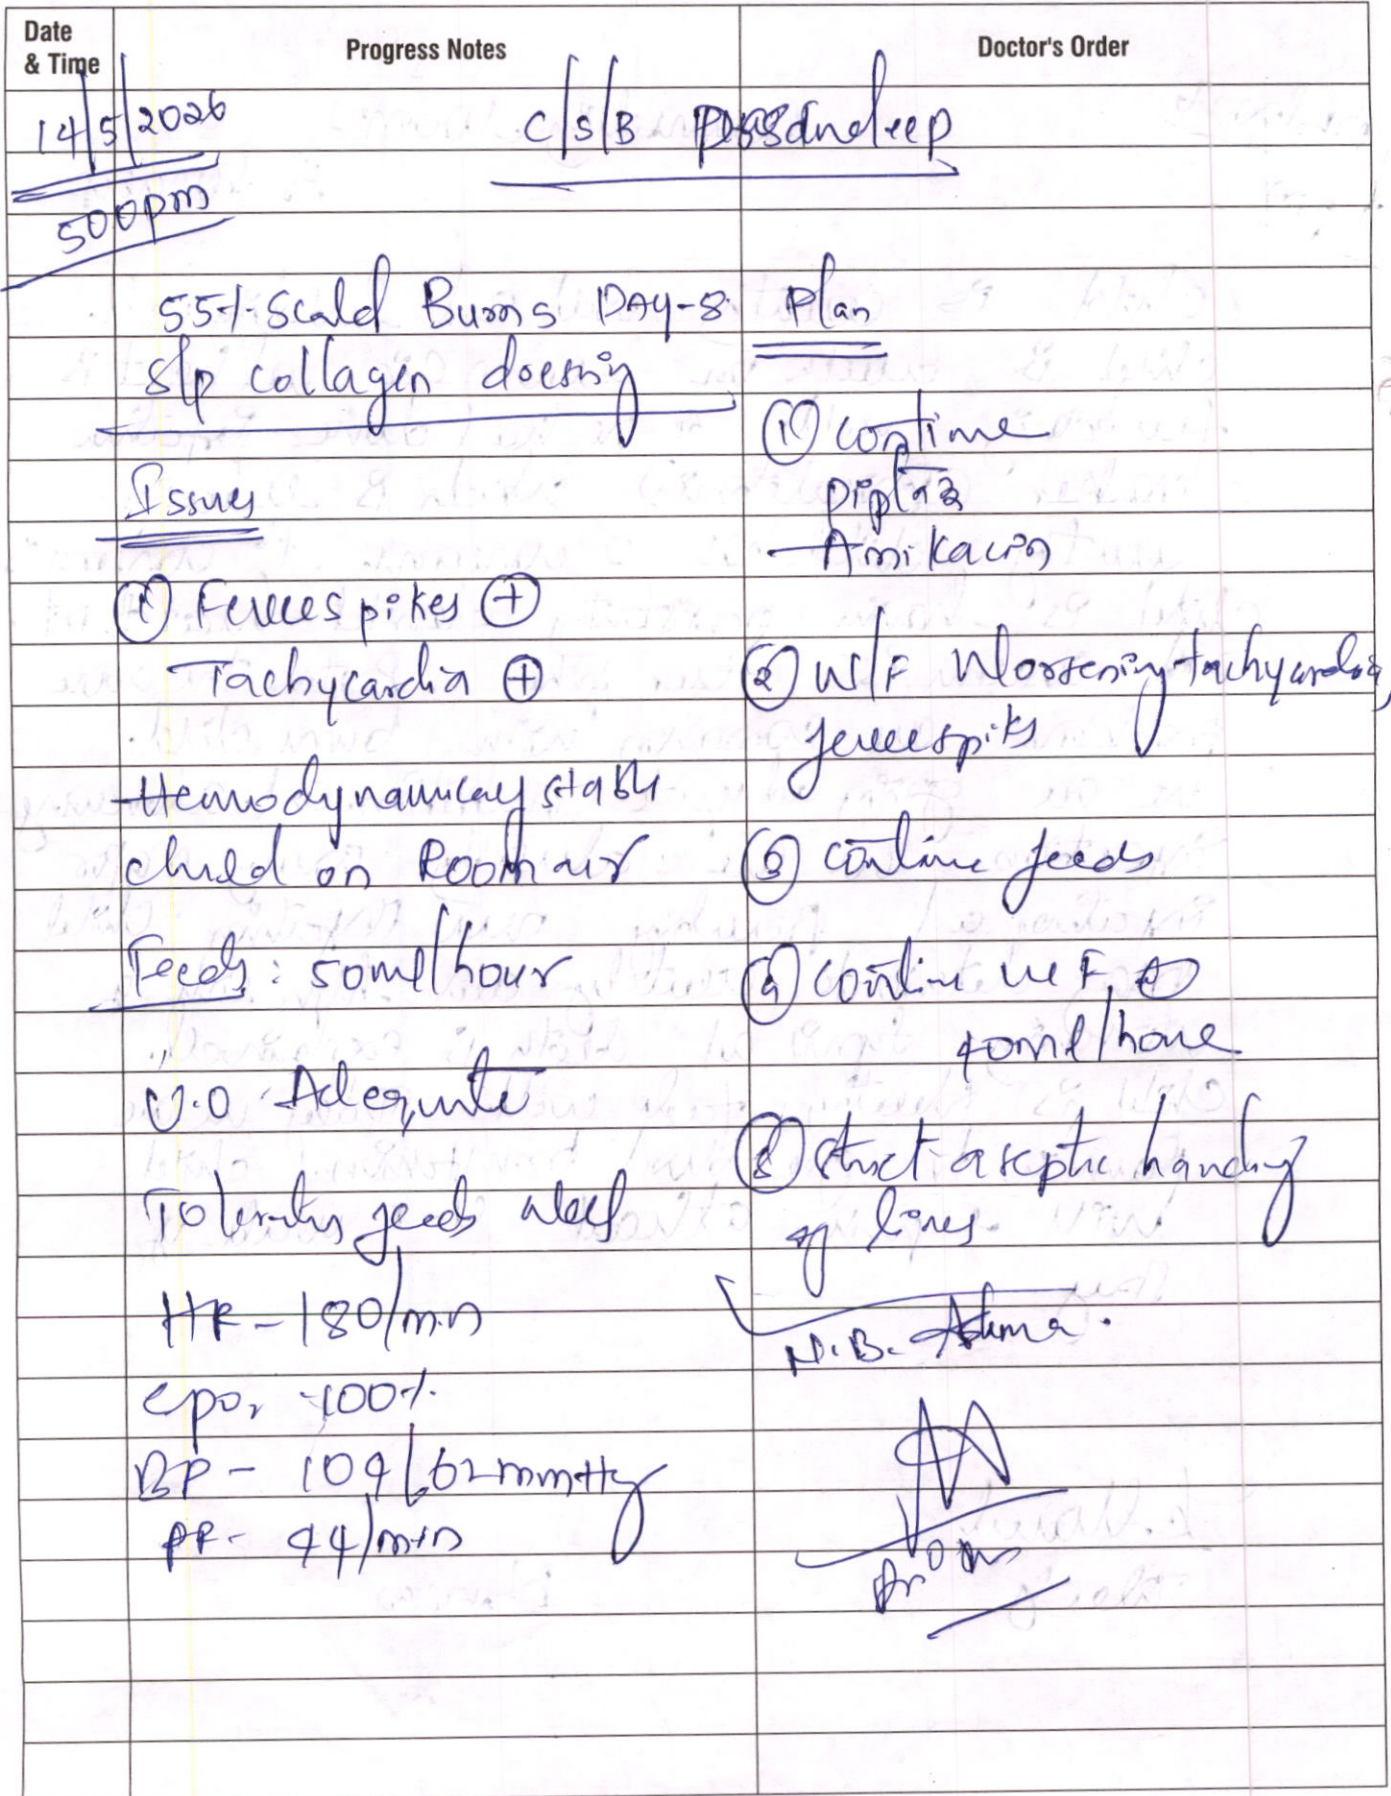 Date
& Time
Progress Notes
Doctor's Order
14/5/2026
500pm
C/S/B Dr Sandeep
55% Scald Burns DAY-8
s/p collagen dressing
Issues
① Fever spikes ⊕
Tachycardia ⊕
Hemodynamicaly stable
child on Room air
Feeds: 50ml/hour
U.O Adequate
Tolerating feeds well
HR - 180/min
spo2 - 100%
BP - 104/62mmHg
RR - 44/min
Plan
① continue
Piptaz
Amikacin
② W/F Worsening tachycardia,
fever spikes
③ continue feeds
④ continue IVF @
40ml/hour
⑤ strict aseptic handling
of lines.
N.B.